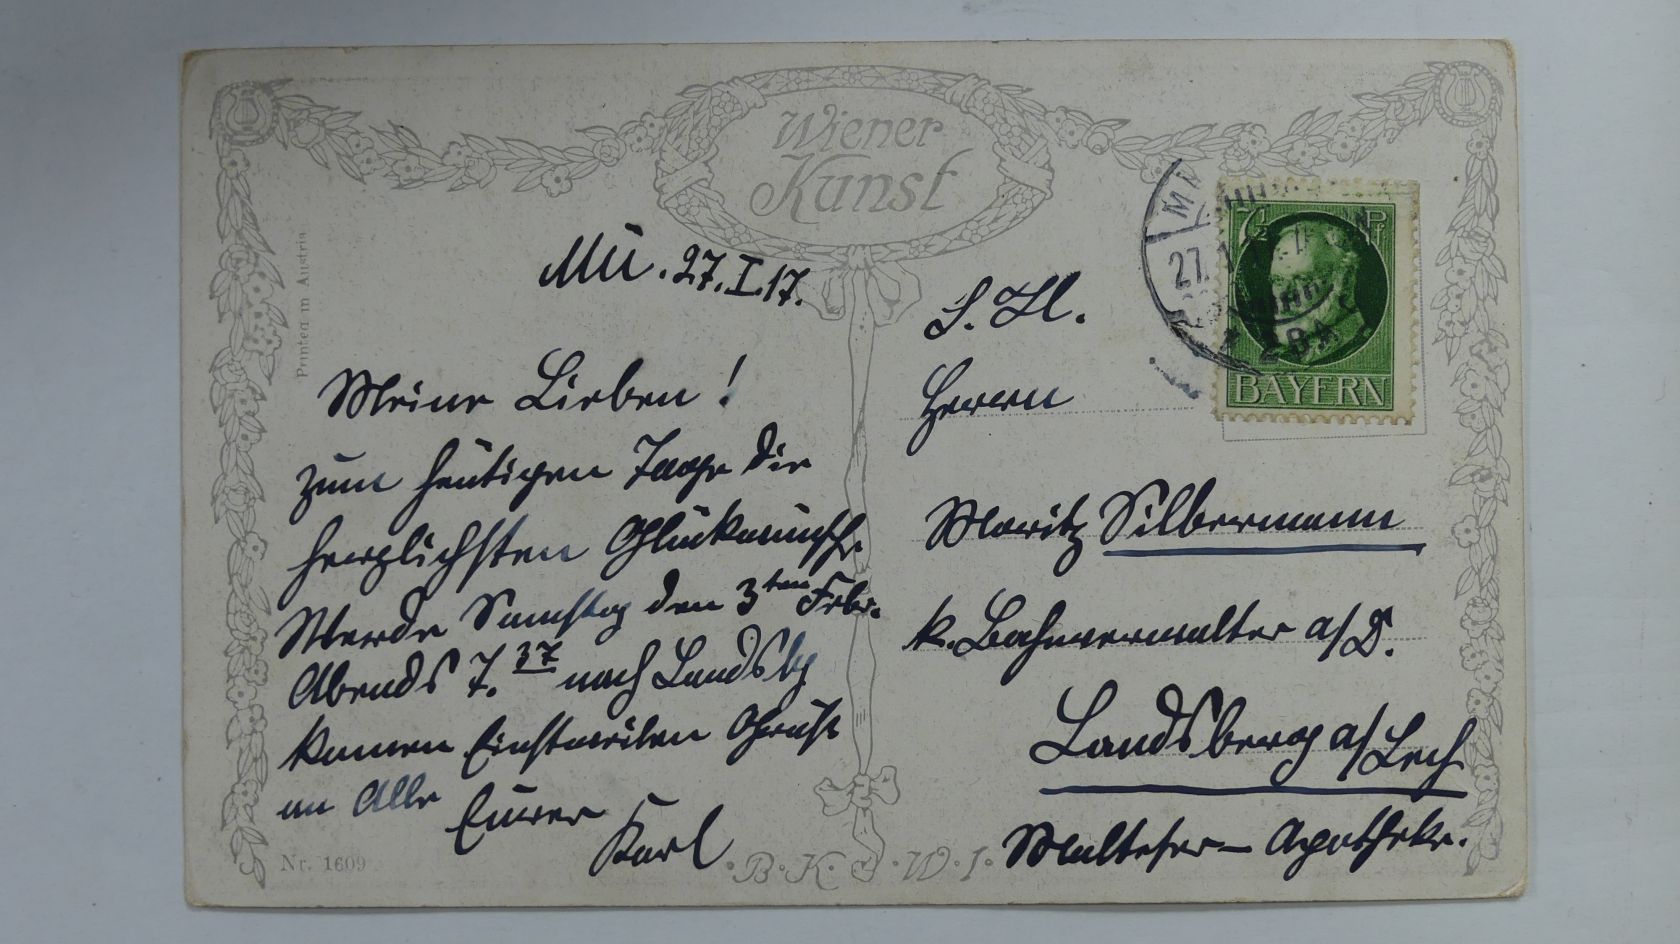 Wiener
Kunst
Printed in Austria
Mü. 27.I.17.
Meine Lieben!
zum heutigen Tage die
herzlichsten Glückwünsche
Werde Samstag den 3ten Febr.
Abends 7.37 nach Landsbg
kommen Einstweilen Grüße
an Alle Eurer
Karl
Nr. 1609
B.K.W.I.
27.1.
7½ Pf
BAYERN
S. H.
Herrn
Moritz Silbermann
k. Bahnverwalter a/D.
Landsberg a/Lech
Malteser-Apotheke.